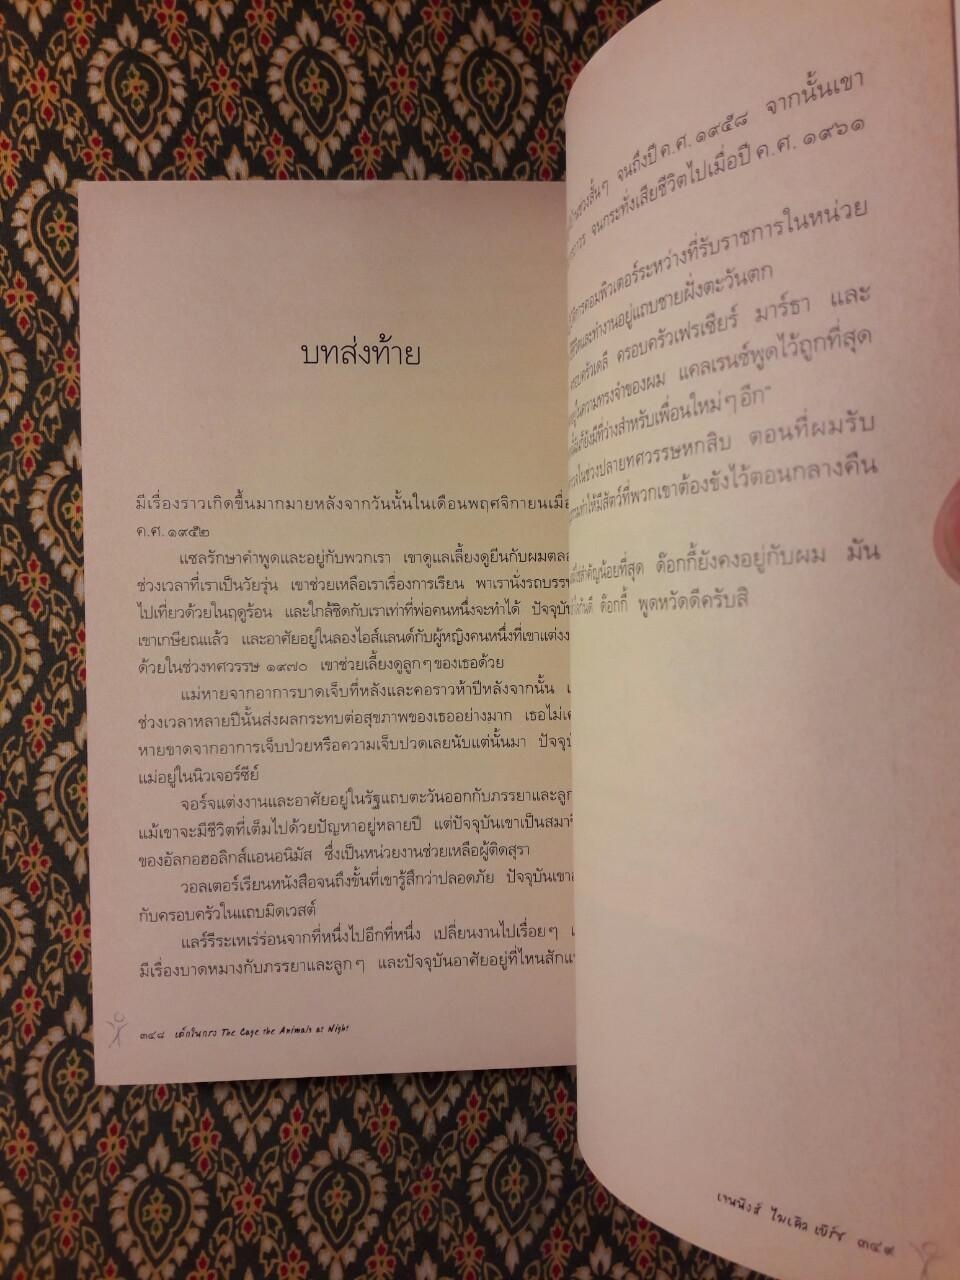 บทส่งท้าย
มีเรื่องราวเกิดขึ้นมากมายหลังจากวันนั้นในเดือนพฤศจิกายนเมื่อ
ค.ศ. ๑๙๕๒
แซลรักษาคำพูดและอยู่กับพวกเรา เขาดูแลเลี้ยงดูยีนกับผมตลอ
ช่วงเวลาที่เราเป็นวัยรุ่น เขาช่วยเหลือเราเรื่องการเรียน พาเรานั่งรถบรร
ไปเที่ยวด้วยในฤดูร้อน และใกล้ชิดกับเราเท่าที่พ่อคนหนึ่งจะทำได้ ปัจจุบัน
เขาเกษียณแล้ว และอาศัยอยู่ในลองไอส์แลนด์กับผู้หญิงคนหนึ่งที่เขาแต่งง
ด้วยในช่วงทศวรรษ ๑๙๗๐ เขาช่วยเลี้ยงดูลูกๆ ของเธอด้วย
แม่หายจากอาการบาดเจ็บที่หลังและคอราวห้าปีหลังจากนั้น
ช่วงเวลาหลายปีนั้นส่งผลกระทบต่อสุขภาพของเธออย่างมาก เธอไม่เค
หายขาดจากอาการเจ็บป่วยหรือความเจ็บปวดเลยนับแต่นั้นมา ปัจจุบั
แม่อยู่ในนิวเจอร์ซีย์
จอร์จแต่งงานและอาศัยอยู่ในรัฐแถบตะวันออกกับภรรยาและลูก
แม้เขาจะมีชีวิตที่เต็มไปด้วยปัญหาอยู่หลายปี แต่ปัจจุบันเขาเป็นสมาชิ
ของอัลกอฮอลิกส์แอนอนิมัส ซึ่งเป็นหน่วยงานช่วยเหลือผู้ติดสุรา
วอลเตอร์เรียนหนังสือจนถึงขั้นที่เขารู้สึกว่าปลอดภัย ปัจจุบันเขา
กับครอบครัวในแถบมิดเวสต์
แลร์รีระเหเร่ร่อนจากที่หนึ่งไปอีกที่หนึ่ง เปลี่ยนงานไปเรื่อยๆ
มีเรื่องบาดหมางกับภรรยาและลูกๆ และปัจจุบันอาศัยอยู่ที่ไหนสักแ
๓๔๘ เด็กในกรง The Cage the Animals at Night
ช่วงสั้นๆ จนถึงปี ค.ศ. ๑๙๕๘ จากนั้นเขา
จนกระทั่งเสียชีวิตไปเมื่อปี ค.ศ. ๑๙๖๑
คอมพิวเตอร์ระหว่างที่รับราชการในหน่วย
ชีวิตและทำงานอยู่แถบชายฝั่งตะวันตก
ครอบครัวเดลี ครอบครัวเฟรเซียร์ มาร์ธา และ
อยู่ในความทรงจำของผม แคลเรนซ์พูดไว้ถูกที่สุด
ยังมีที่ว่างสำหรับเพื่อนใหม่ๆ อีก"
ในช่วงปลายทศวรรษหกสิบ ตอนที่ผมรับ
ทำให้มีสัตว์ที่พวกเขาต้องขังไว้ตอนกลางคืน
สำคัญน้อยที่สุด ด๊อกกี้ยังคงอยู่กับผม มัน
ด๊อกกี้ พูดหวัดดีครับสิ
เจนนิงส์ ไมเคิล เบิร์ช ๓๔๙